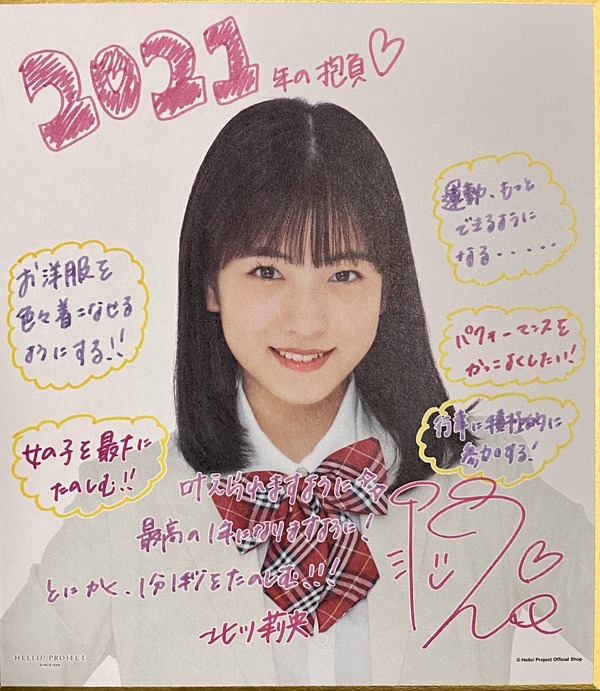 2021年の抱負♡
お洋服を
色々着こなせる
ようにする!!
運動、もっと
できるように
なる.....
パフォーマンスを
かっこよくしたい!
女の子を最大に
たのしむ!!
行事に積極的に
参加する!
叶えられますように☆
最高の1年になりますように!
とにかく、1分1秒をたのしむ!!!
北川莉央
HELLO! PROJECT
© Hello! Project Official Shop